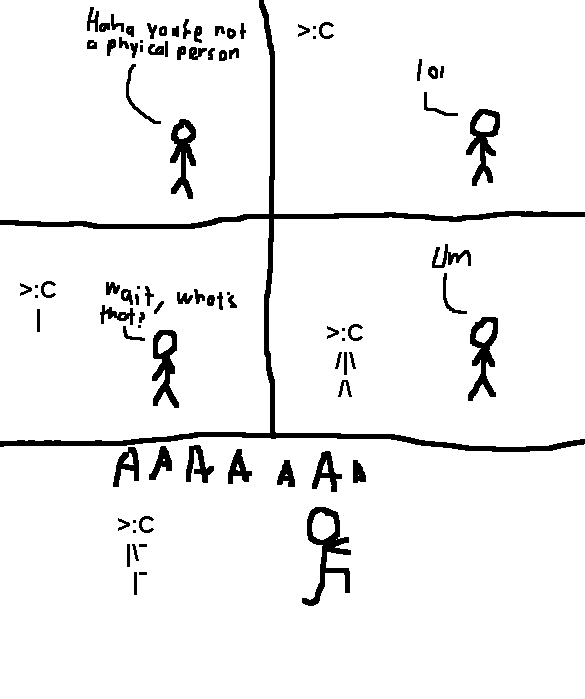 Haha you're not
a phyical person
>:C
lol
>:C
|
Wait, what's
that?
Um
>:C
/|\
/\
A A A A A A A
>:C
|\¯
|¯